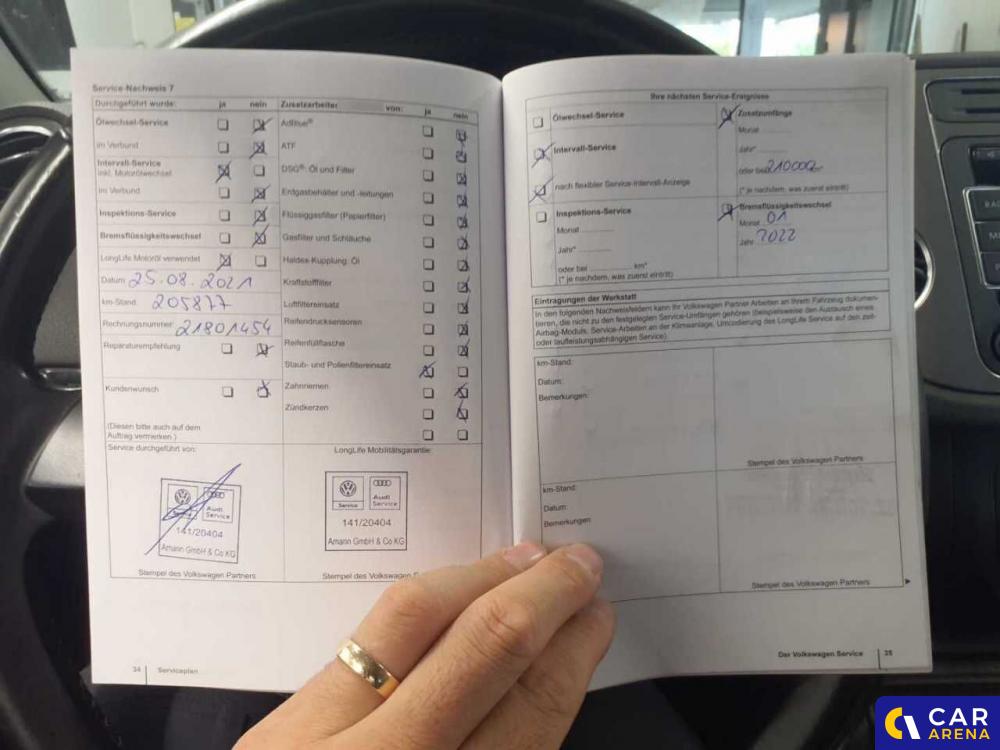 Service-Nachweis 7
Durchgeführt wurde: ja nein
Ölwechsel-Service
im Verbund
Intervall-Service
inkl. Motorölwechsel
im Verbund
Inspektions-Service
Bremsflüssigkeitswechsel
LongLife Motoröl verwendet
Datum 25.08.2021
km-Stand: 205877
Rechnungsnummer 21801454
Reparaturempfehlung
Kundenwunsch
(Diesen bitte auch auf dem
Auftrag vermerken.)
Service durchgeführt von:
Service
Audi
Service
141/20404
Amann GmbH & Co KG
Stempel des Volkswagen Partners
Zusatzarbeiten von: ja nein
AdBlue®
ATF
DSG®: Öl und Filter
Entgasbehälter und -leitungen
Flüssiggasfilter (Papierfilter)
Gasfilter und Schläuche
Haldex-Kupplung: Öl
Kraftstofffilter
Luftfiltereinsatz
Reifendrucksensoren
Reifenfüllflasche
Staub- und Pollenfiltereinsatz
Zahnriemen
Zündkerzen
LongLife Mobilitätsgarantie:
Service
Audi
Service
141/20404
Amann GmbH & Co KG
Stempel des Volkswagen P
34 Serviceplan
Ihre nächsten Service-Ereignisse
Ölwechsel-Service
Intervall-Service
nach flexibler Service-Intervall-Anzeige
Inspektions-Service
Monat
Jahr*
oder bei km*
(* je nachdem, was zuerst eintritt)
Zusatzumfänge
Monat
Jahr*
oder bei 210000
(* je nachdem, was zuerst eintritt)
Bremsflüssigkeitswechsel
Monat 01
Jahr 2022
Eintragungen der Werkstatt
In den folgenden Nachweisfeldern kann Ihr Volkswagen Partner Arbeiten an Ihrem Fahrzeug dokumen-
tieren, die nicht zu den festgelegten Service-Umfängen gehören (beispielsweise den Austausch eines
Airbag-Moduls, Service-Arbeiten an der Klimaanlage, Umcodierung des LongLife Service auf den zeit-
oder laufleistungsabhängigen Service).
km-Stand:
Datum:
Bemerkungen:
Stempel des Volkswagen Partners
km-Stand:
Datum:
Bemerkungen:
Stempel des Volkswagen Partners
Der Volkswagen Service 35
CAR
ARENA